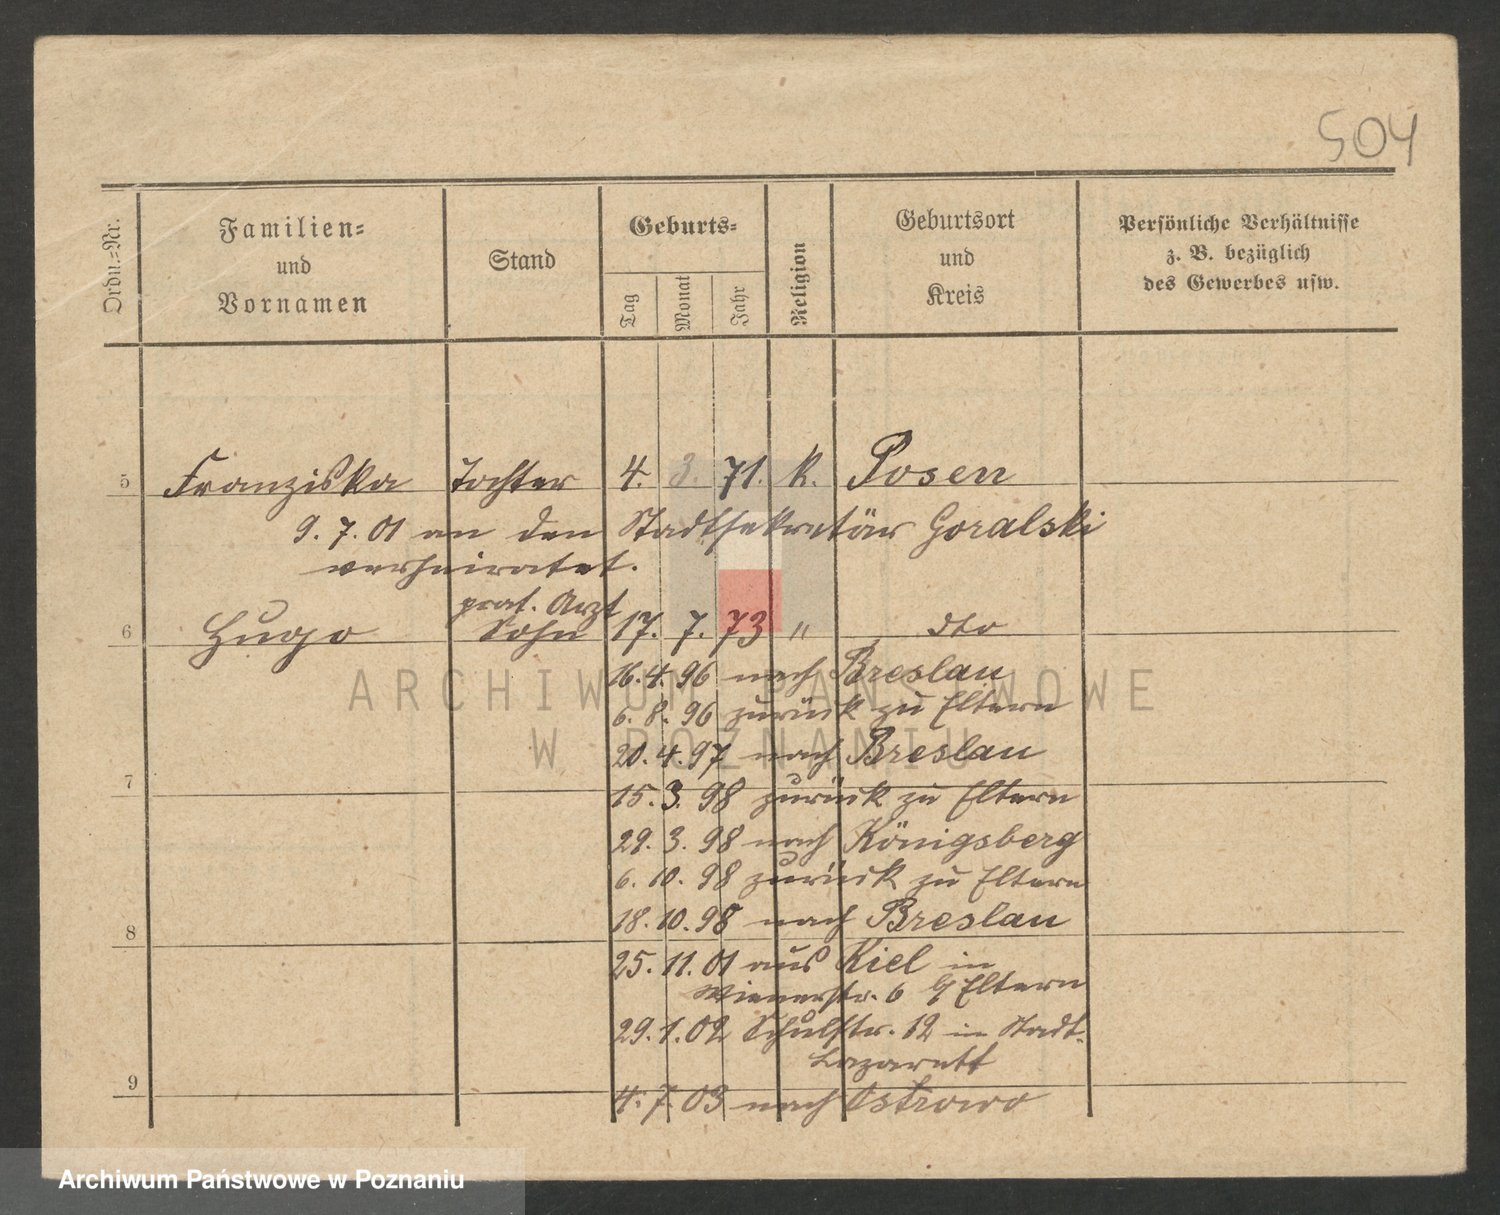 504
Ordn.-Nr.
Familien-
und
Vornamen
Stand
Geburts-
Tag
Monat
Jahr
Religion
Geburtsort
und
Kreis
Persönliche Verhältnisse
z. B. bezüglich
des Gewerbes usw.
5 Franziska Tochter 4. 3. 71. k. Posen
9. 7. 01 an den Stadtsekretär Goralski
verheiratet.
prat. Arzt
6 Hugo Sohn 17. 7. 73 " dto
16. 4. 96 nach Breslau
6. 8. 96 zurück zu Eltern
20. 4. 97 nach Breslau
7
15. 3. 98 zurück zu Eltern
29. 3. 98 nach Königsberg
6. 10. 98 zurück zu Eltern
18. 10. 98 nach Breslau
8
25. 11. 01 aus Kiel in
Wienerstr. 6 Eltern
29. 1. 02 Schulstr. 12 in Stadt-
Lazarett
9
4. 7. 03 nach Ostrowo
ARCHIWUM PAŃSTWOWE
W POZNANIU
Archiwum Państwowe w Poznaniu